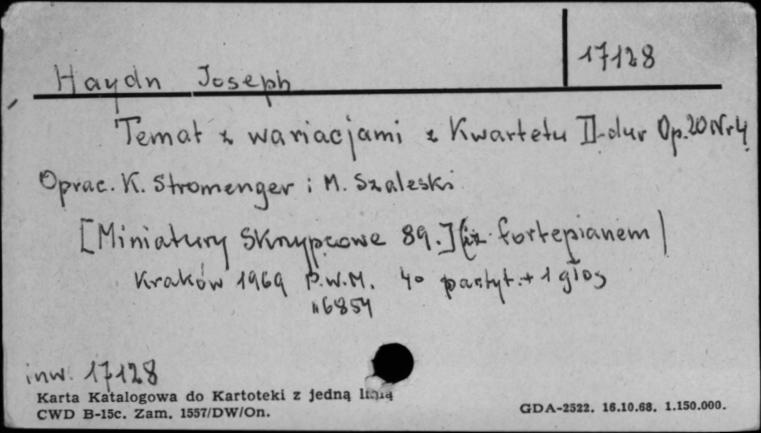 17128
Haydn Joseph
Temat z wariacjami z Kwartetu D-dur Op.20 Nr 4
Oprac. K. Stromenger i M. Szaleski
[Miniatury Skrzypcowe 89.] (z fortepianem)
Kraków 1969 P.W.M. 4° partyt. + 1 głos
"6854
inw. 17128
Karta Katalogowa do Kartoteki z jedną linią
CWD B-15c. Zam. 1557/DW/On.
GDA-2522. 16.10.68. 1.150.000.